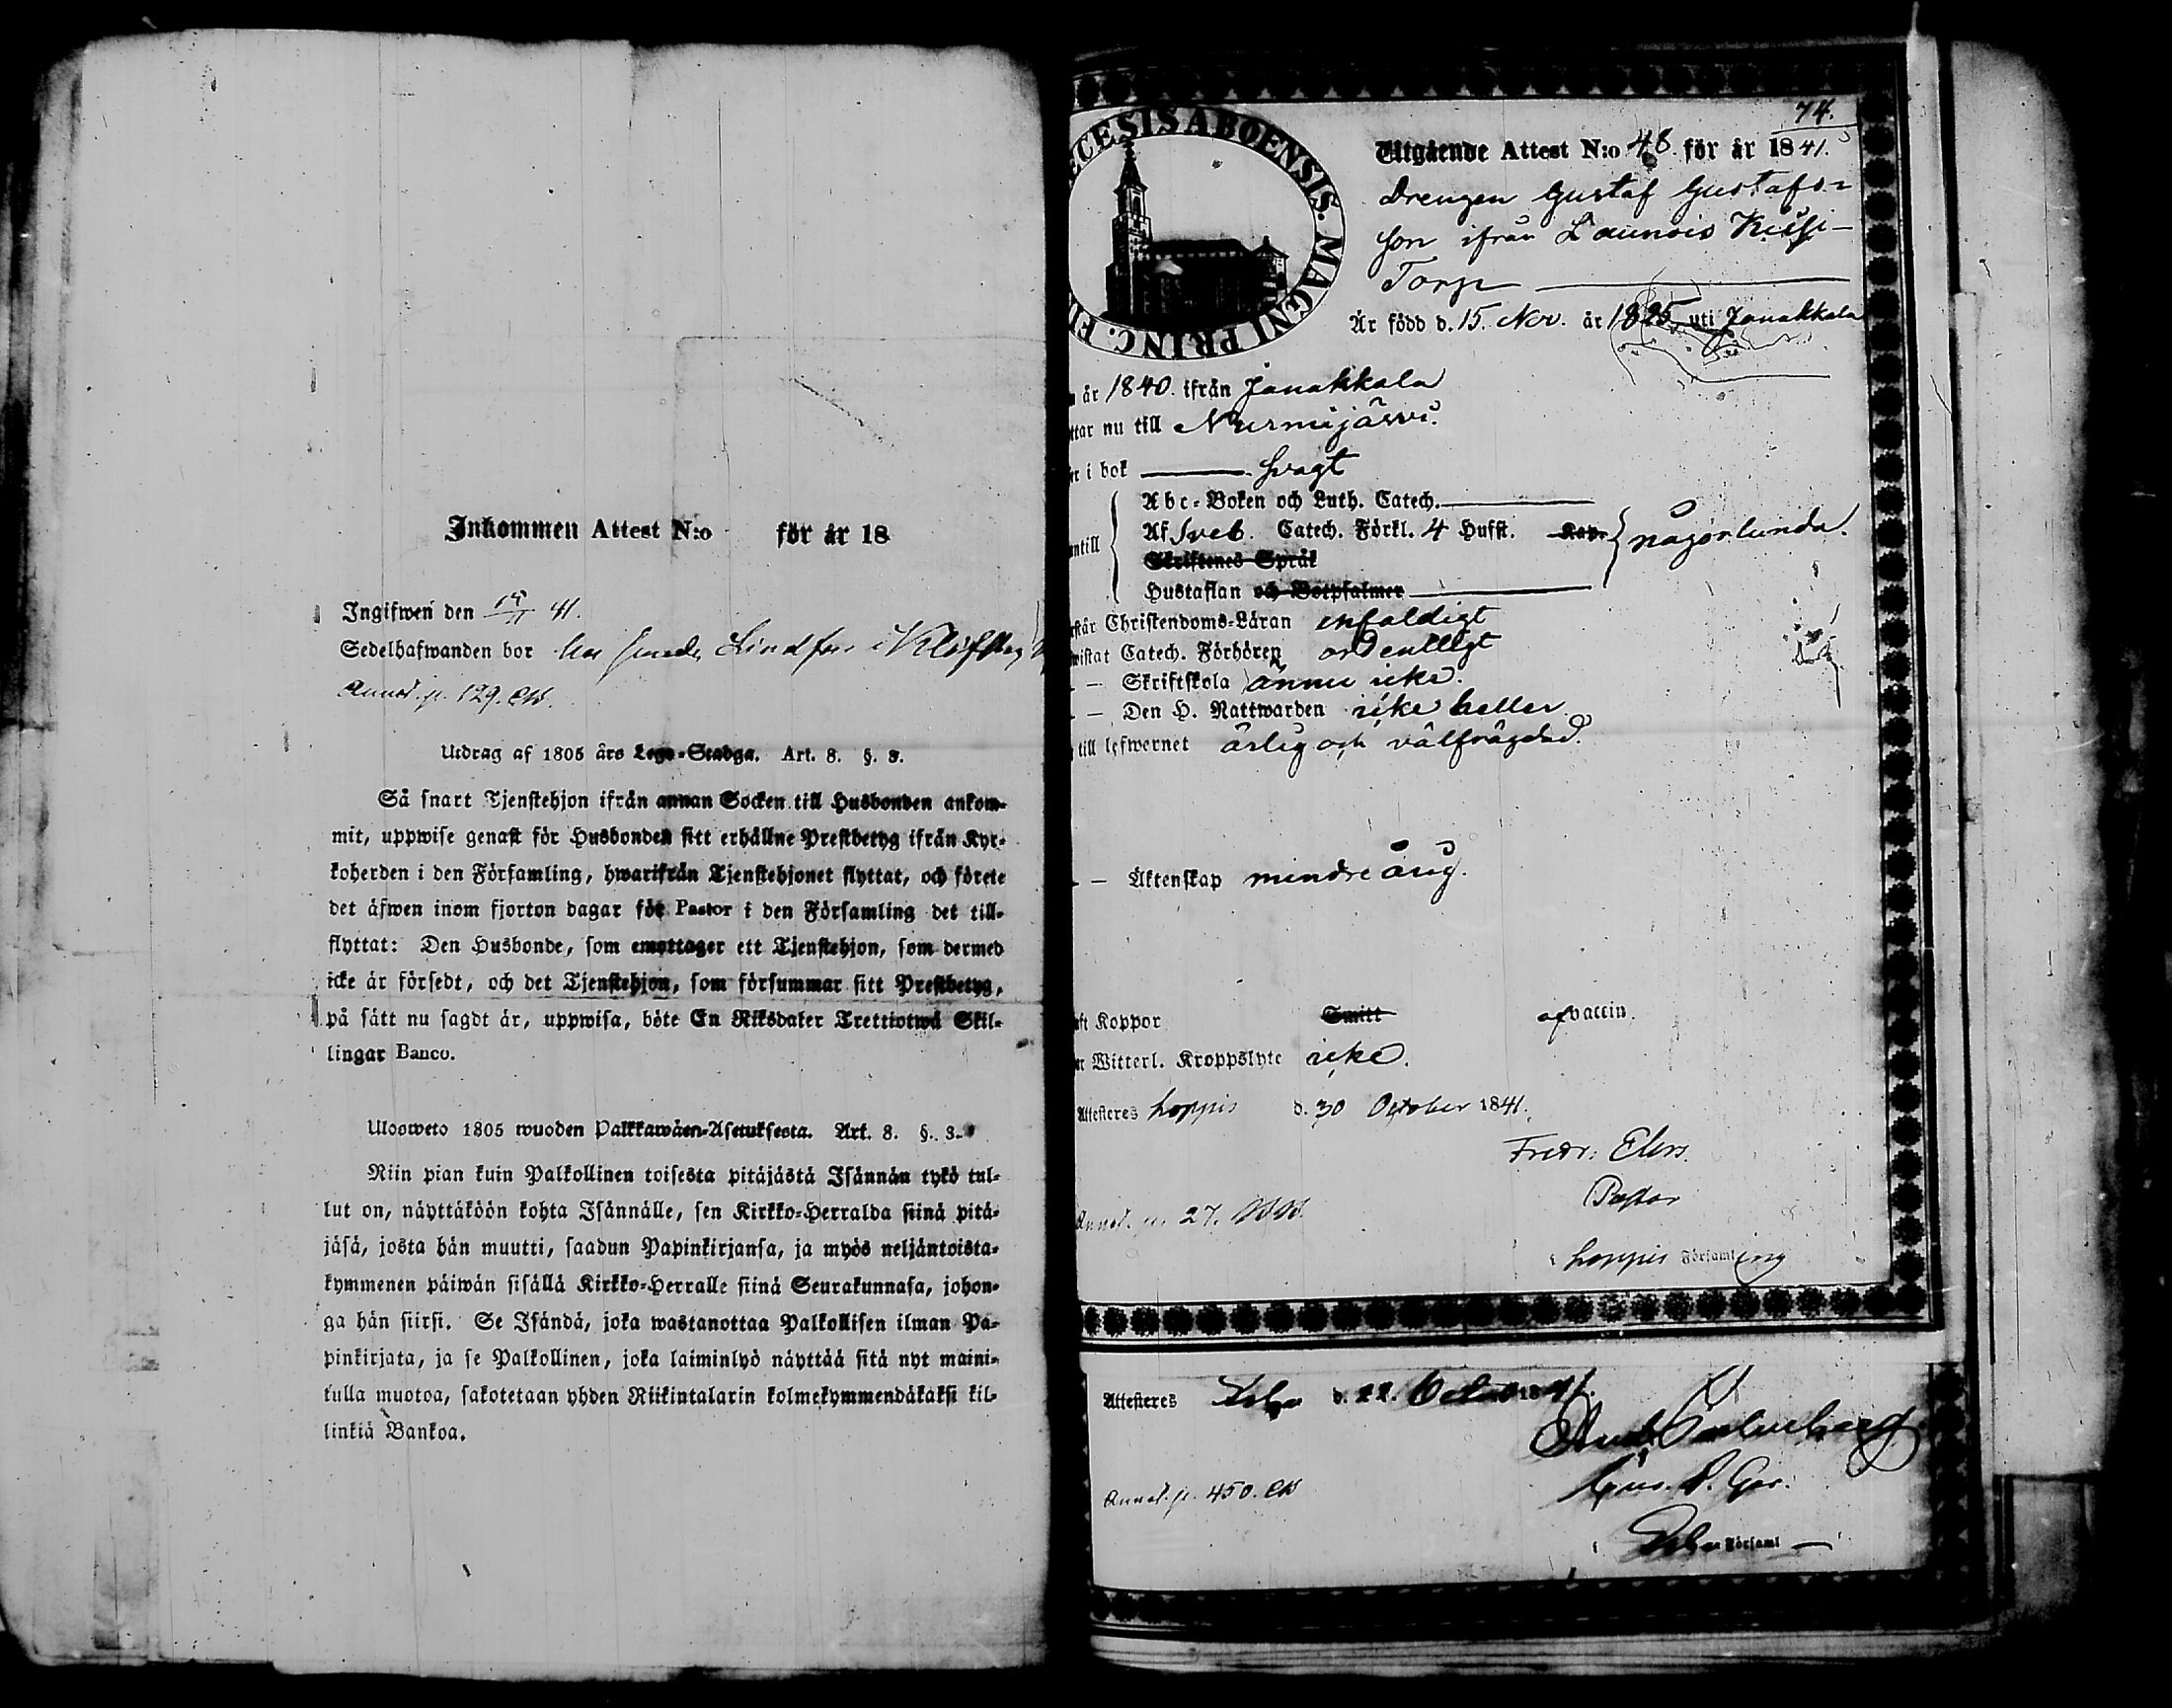 Inkommen Attest N:o för år 18
Ingifwen den 15/11 41.
Sedelhafwanden bor hos Lindfors i
Annot. p. 129.
Utdrag af 1805 års Lego-Stadga. Art. 8. §. 3.
Så snart Tjenstehjon ifrån annan Socken till Husbonden ankom-
mit, uppwise genast för Husbonden sitt erhållne Prestbetyg ifrån Kyr-
koherden i den Församling, hwarifrån Tjenstehjonet flyttat, och förete
det äfwen inom fjorton dagar för Pastor i den Församling det till-
flyttat: Den Husbonde, som emottager ett Tjenstehjon, som dermed
icke är försedt, och det Tjenstehjon, som försummar sitt Prestbetyg,
på sätt nu sagdt är, uppwisa, böte En Riksdaler Trettiotwå Skil-
lingar Banco.
Ulosweto 1805 wuoden Palkkawäen-Asetuksesta. Art. 8. §. 3.
Niin pian kuin Palkollinen toisesta pitäjästä Isännän tykö tul-
lut on, näyttäköön kohta Isännälle, sen Kirkko-Herralda siinä pitä-
jäsä, josta hän muutti, saadun Papinkirjansa, ja myös neljäntoista-
kymmenen päiwän sisällä Kirkko-Herralle siinä Seurakunnasa, johon-
ga hän siirsi. Se Isändä, joka wastanottaa Palkollisen ilman Pa-
pinkirjata, ja se Palkollinen, joka laiminlyö näyttää sitä nyt maini-
tulla muotoa, sakotetaan yhden Riikintalarin kolmekymmendäkaksi kil-
linkiä Bankoa.
74.
ECESIS ABOENSIS. MAGNI PRINC. FI
Utgående Attest N:o 48. för år 1841.
Drengen Gustaf Gustafs-
son ifrån Launois Kissi-
Torp
Är född d. 15. Nov. år 1825 uti Janakkala
år 1840. ifrån Janakkala
ttar nu till Nurmijärvi.
er i bok svagt
Abc-Boken och Luth. Catech.
Af Sveb. Catech. Förkl. 4 Hufst. Kap. någorlunda.
antill
Skriftenes Språk
Hustaflan och Botpsalmer
rstår Christendoms-Läran enfaldigt
wistat Catech. Förhören ordentligt
— Skriftskola ännu icke.
— Den H. Nattwarden icke heller
till lefwernet ärlig och välfrägdad.
— Äktenskap mindreårig.
aft Koppor Smitt af vaccin.
er Witterl. Kroppslyte icke.
Attesteres Loppis d. 30 October 1841.
Fredr: Elers.
Pastor
Annot. p. 27.
i Loppis Församling
Attesteres d. 22. October 1841.
Annot. p. 450.
i Församl